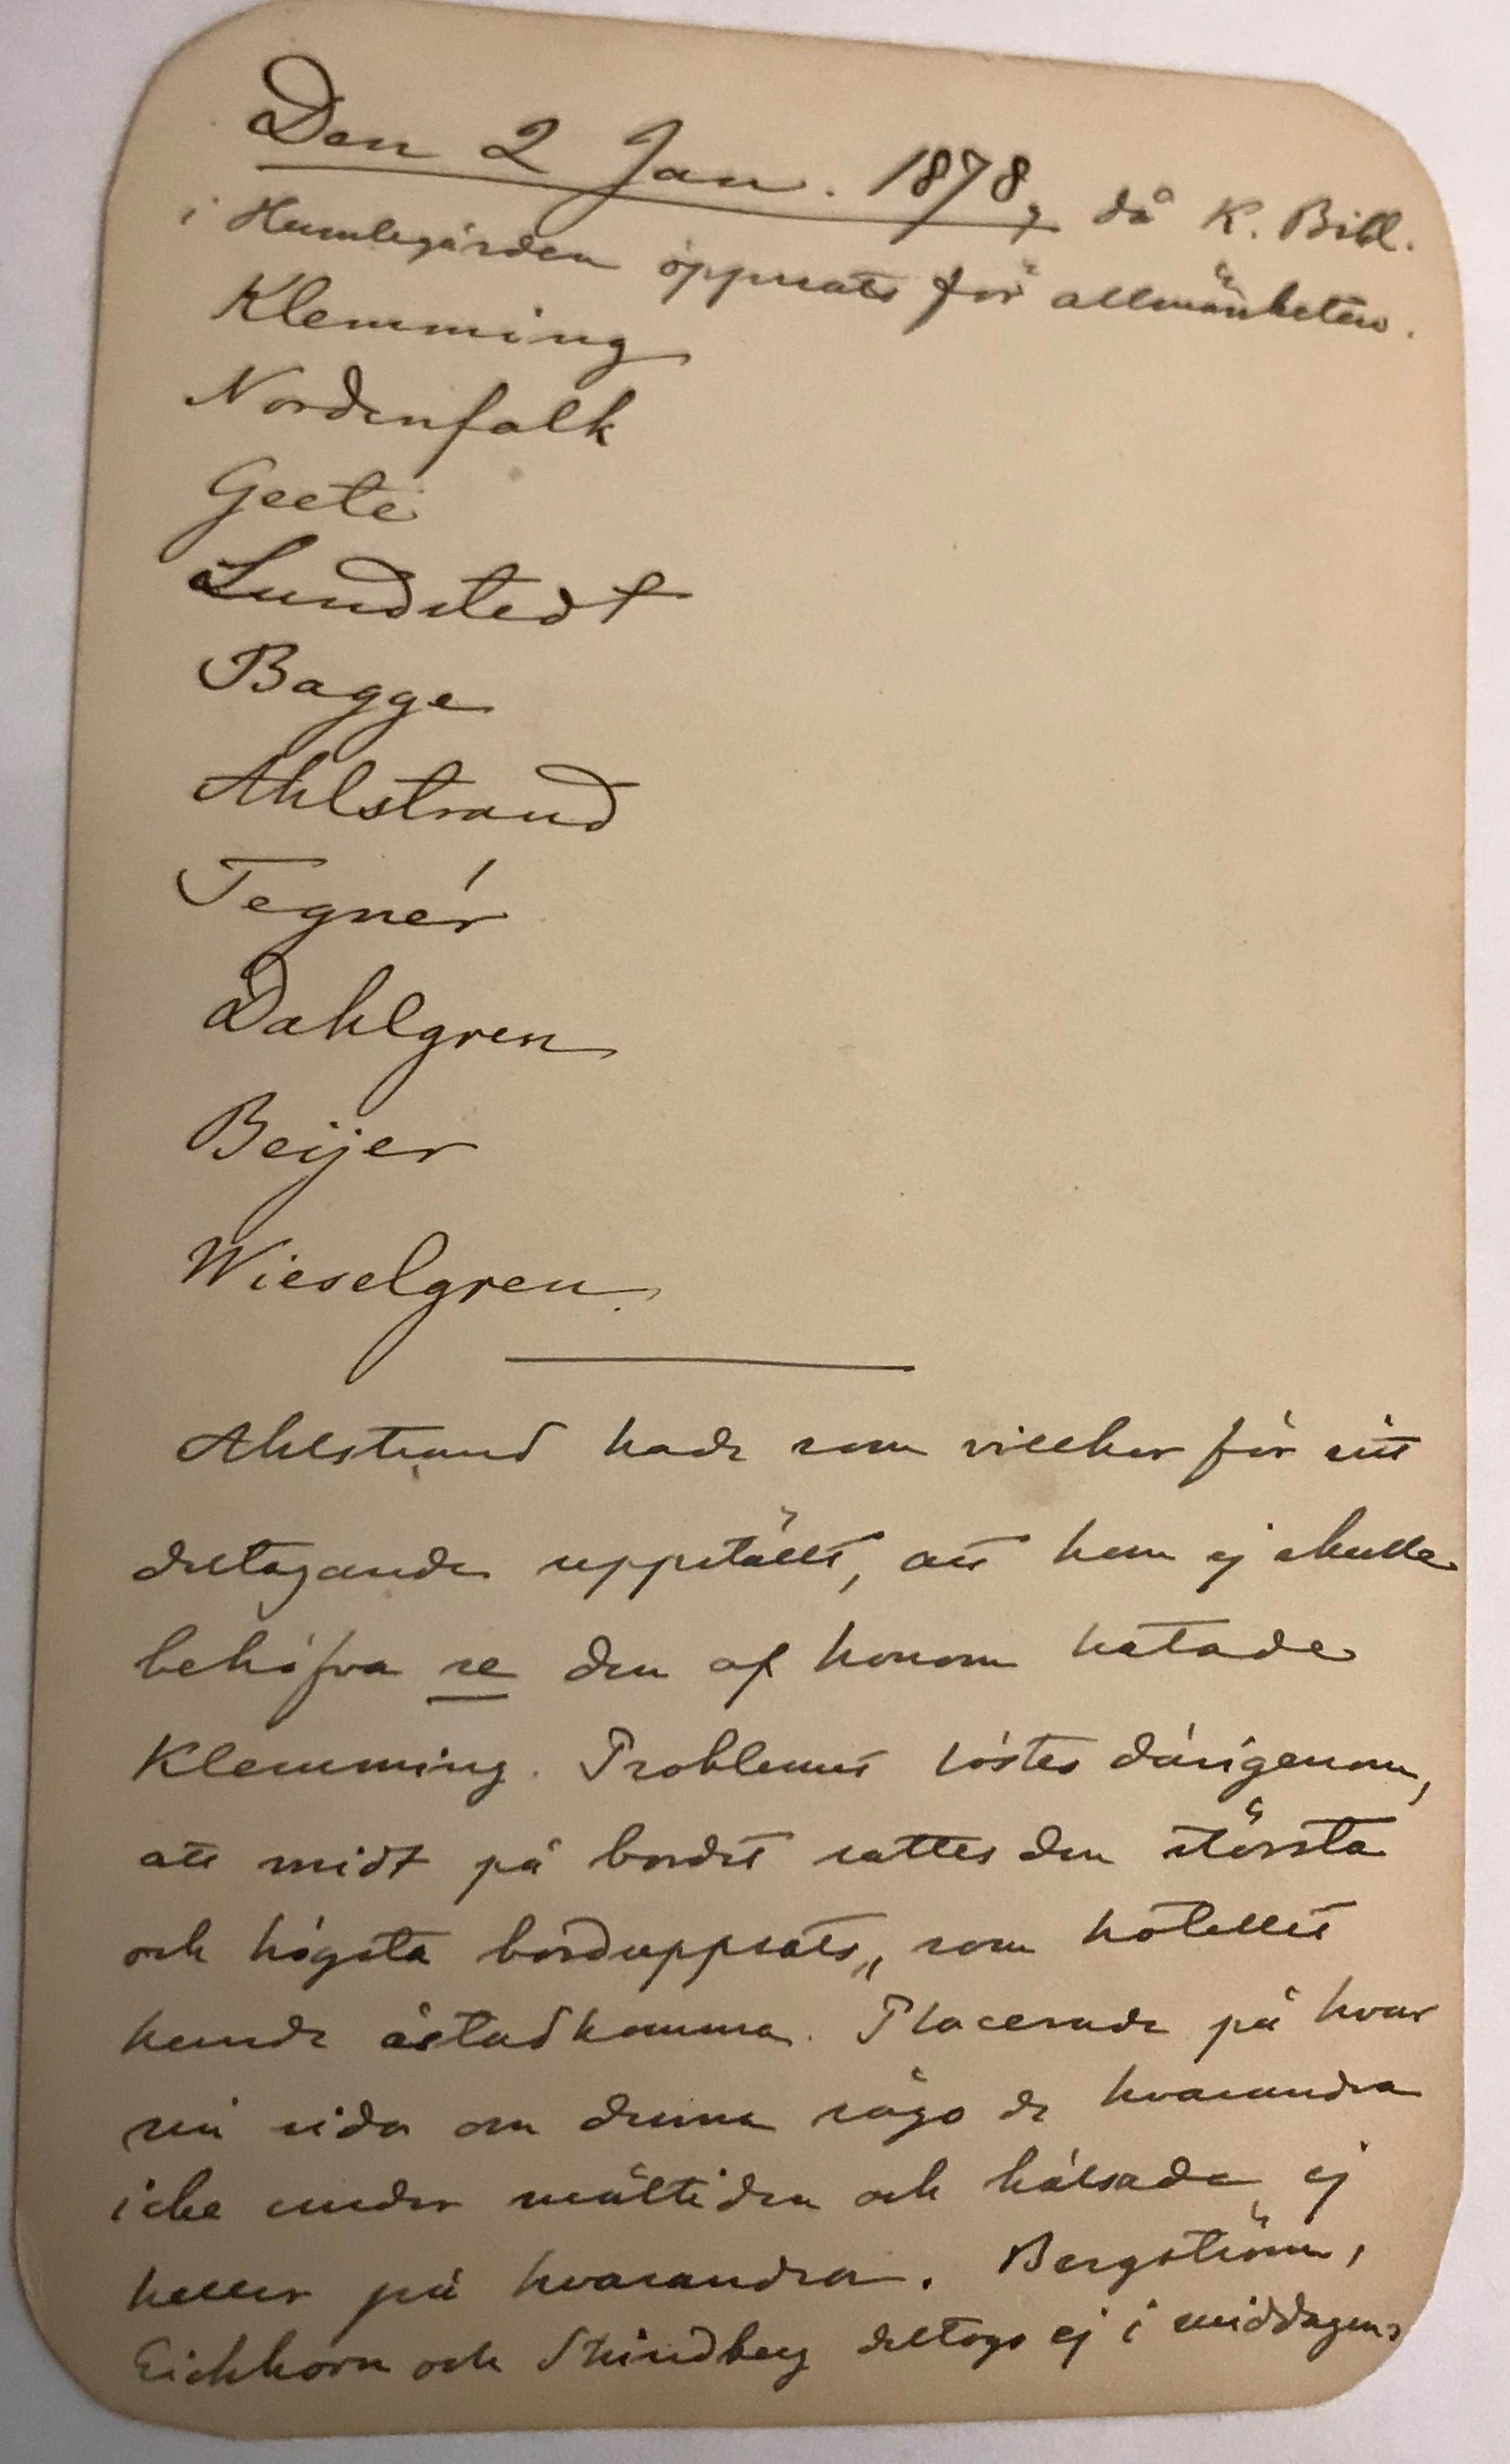 Den 2 Jan. 1878, då K. Bibl.
i Humlegården öppnats för allmänheten.
Klemming
Nordenfalk
Geete
Lundstedt
Bagge
Ahlstrand
Tegnér
Dahlgren
Beijer
Wieselgren.
Ahlstrand hade som villkor för sitt
deltagande uppställt, att han ej skulle
behöfva se den af honom hatade
Klemming. Problemet löstes därigenom,
att midt på bordet sattes den största
och högsta borduppsats, som hotellet
kunde åstadkomma. Placerade på hvar
sin sida om denna sågo de hvarandra
icke under måltiden och hälsade ej
heller på hvarandra. Bergström,
Eichhorn och Strindberg deltogo ej i middagen.